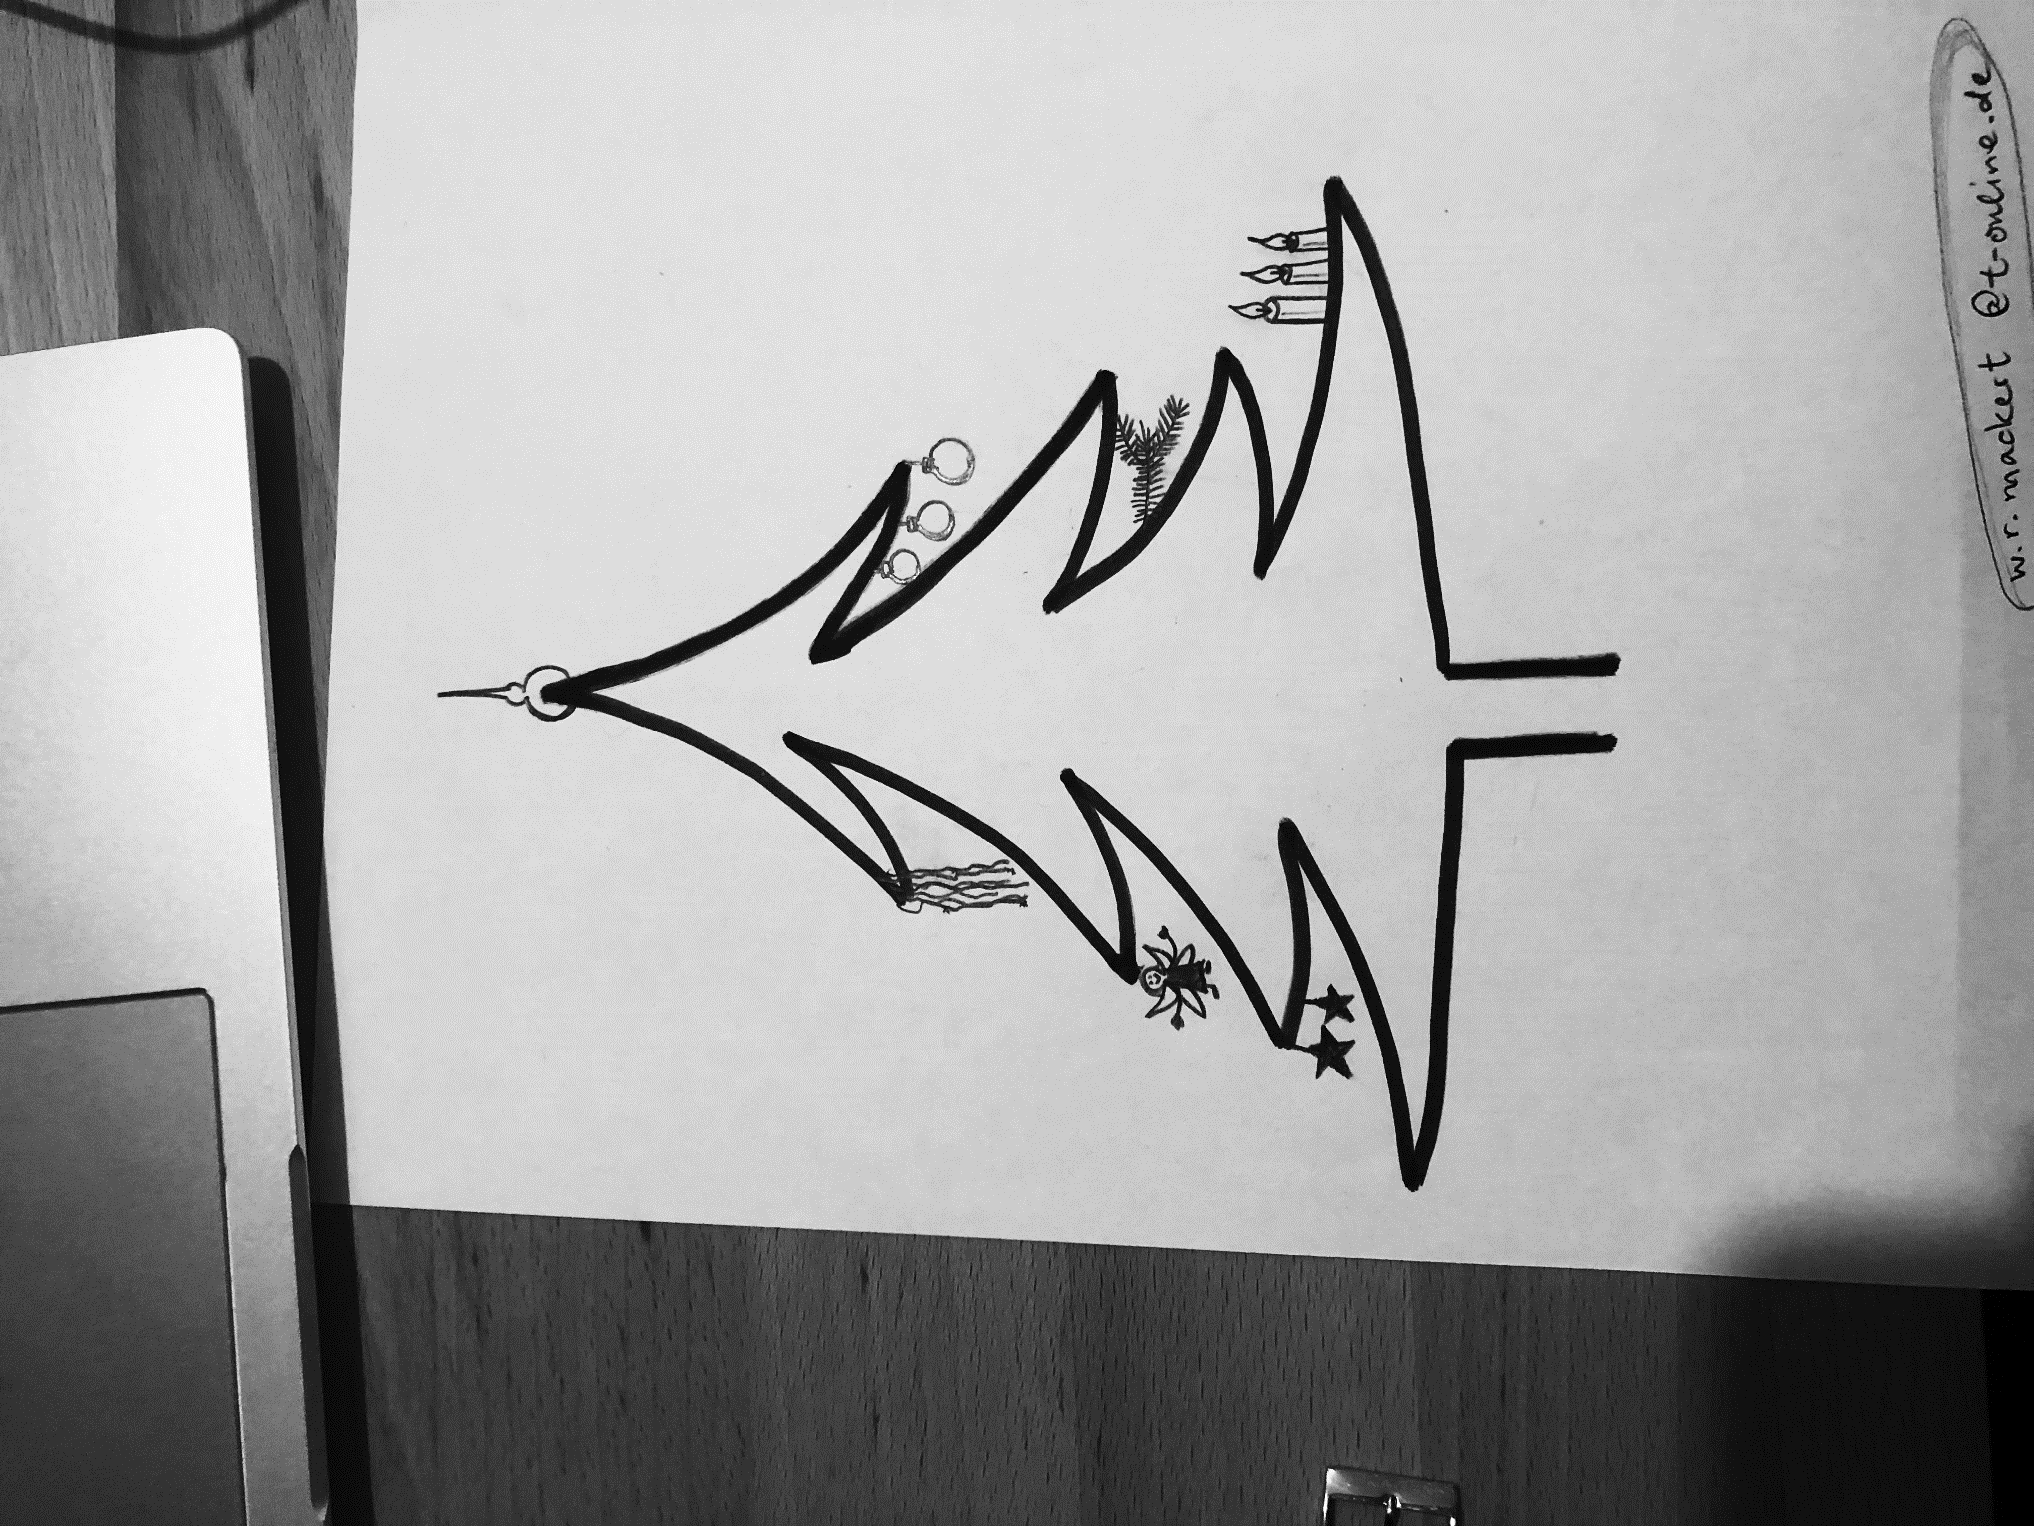 w.r.mackert @t-online.de